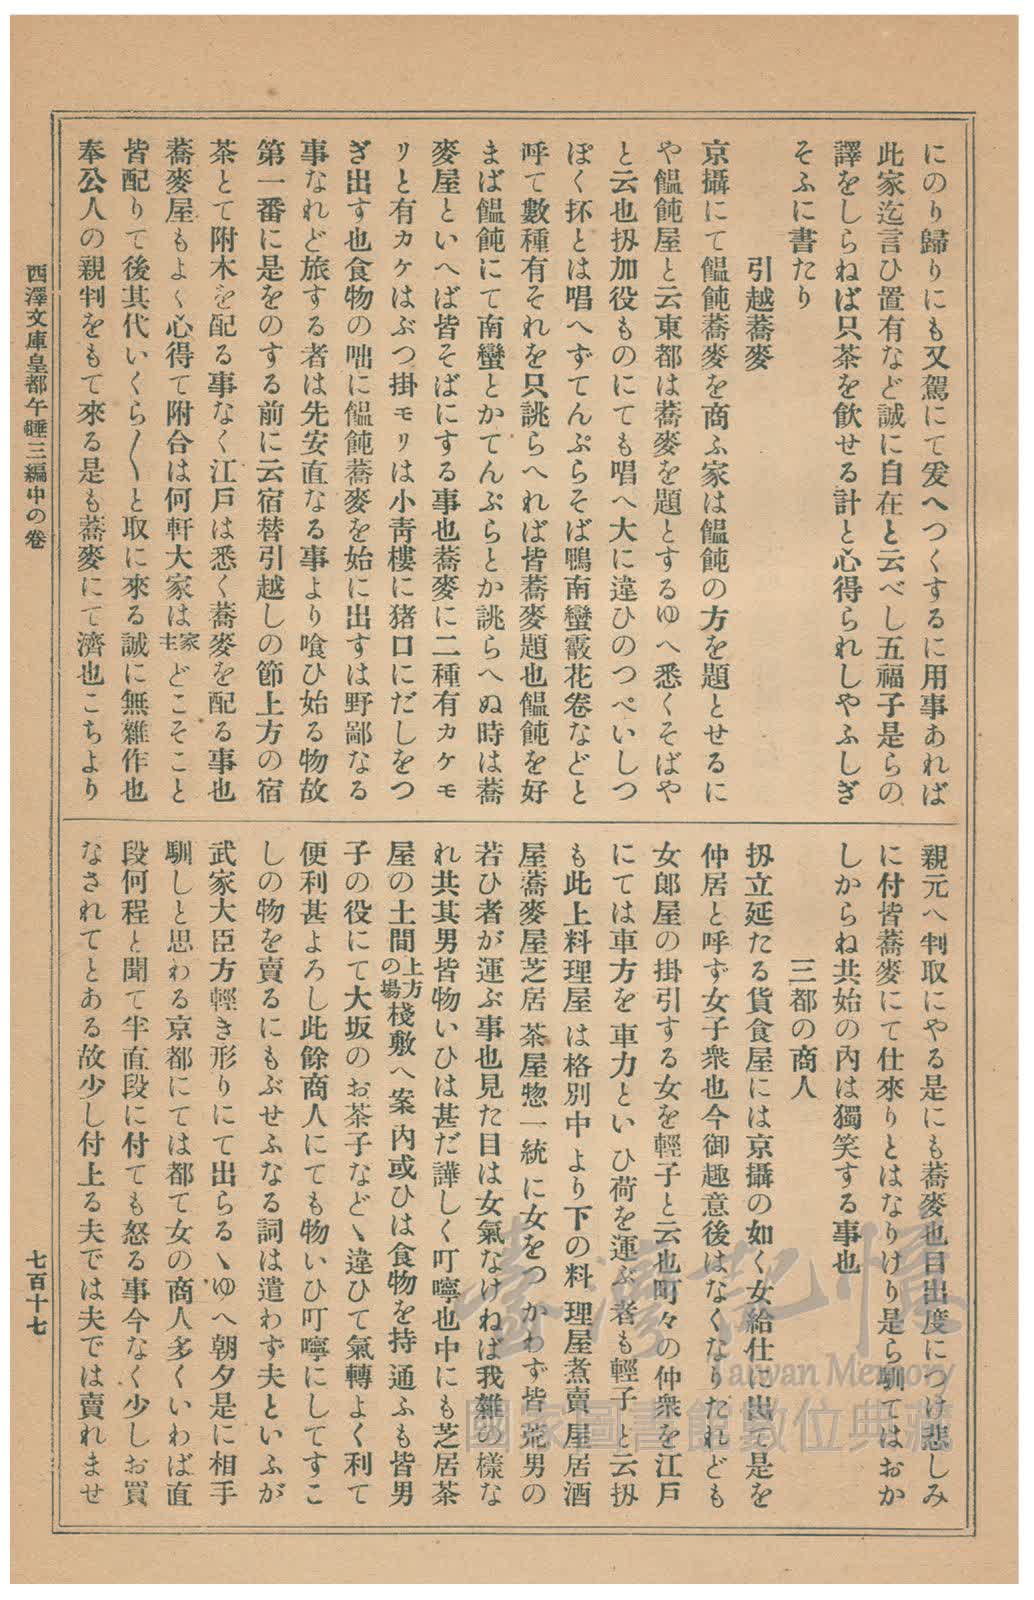 にのり歸りにも又駕にて爰へつくするに用事あれば
此家迄言ひ置有など誠に自在と云べし五福子是らの
譯をしらねば只茶を飮せる計と心得られしやふしぎ
そふに書たり
引越蕎麥
京攝にて饂飩蕎麥を商ふ家は饂飩の方を題とせるに
や饂飩屋と云東都は蕎麥を題とするゆへ悉くそばや
と云也扨加役ものにても唱へ大に違ひのつぺいしつ
ぽく抔とは唱へずてんぷらそば鴨南蠻霰花卷などと
呼て數種有それを只誂らへれば皆蕎麥題也饂飩を好
まば饂飩にて南蠻とかてんぷらとか誂らへぬ時は蕎
麥屋といへば皆そばにする事也蕎麥に二種有カケモ
リと有カケはぶつ掛モリは小靑樓に猪口にだしをつ
ぎ出す也食物の咄に饂飩蕎麥を始に出すは野鄙なる
事なれど旅する者は先安直なる事より喰ひ始る物故
第一番に是をのする前に云宿替引越しの節上方の宿
茶とて附木を配る事なく江戶は悉く蕎麥を配る事也
蕎麥屋もよく心得て附合は何軒大家は家主どこそこと
皆配りて後其代いくら〱と取に來る誠に無雜作也
奉公人の親判をもて來る是も蕎麥にて濟也こちより
親元へ判取にやる是にも蕎麥也目出度につけ悲しみ
に付皆蕎麥にて仕來りとはなりけり是ら馴てはおか
しからね共始の內は獨笑する事也
三都の商人
扨立延たる貨食屋には京攝の如く女給仕に出て是を
仲居と呼ず女子衆也今御趣意後はなくなりたれども
女郞屋の掛引する女を輕子と云也町々の仲衆を江戶
にては車方を車力といひ荷を運ぶ者も輕子と云扨
も此上料理屋は格別中より下の料理屋煮賣屋居酒
屋蕎麥屋芝居茶屋惣一統に女をつかわず皆荒男の
若ひ者が運ぶ事也見た目は女氣なけねば我雜の樣な
れ共其男皆物いひは甚だ譁しく叮嚀也中にも芝居茶
屋の土間上方の場棧敷へ案內或ひは食物を持通ふも皆男
子の役にて大坂のお茶子などゝ違ひて氣轉よく利て
便利甚よろし此餘商人にても物いひ叮嚀にしてすこ
しの物を賣るにもぶせふなる詞は遣わず夫といふが
武家大臣方輕き形りにて出らるゝゆへ朝夕是に相手
馴しと思わる京都にては都て女の商人多くいわば直
段何程と聞て半直段に付ても怒る事今なく少しお買
なされてとある故少し付上る夫では夫では賣れませ
西澤文庫皇都午睡三編中の卷
七百十七
臺灣記憶
Taiwan Memory
國家圖書館數位典藏